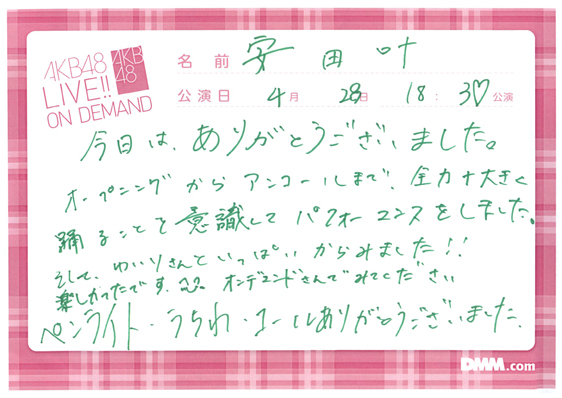 AKB48
LIVE!!
ON DEMAND
AKB
48
名前 安田叶
公演日 4月 28日 18:30公演
今日は、ありがとうございました。
オープニングからアンコールまで、全力+大きく
踊ることを意識してパフォーマンスをしました。
そして、ゆいりさんといっぱいからみました!!
楽しかったです オンデマンドさんでみてください
ペンライト・うちわ・コールありがとうございました。
DMM.com